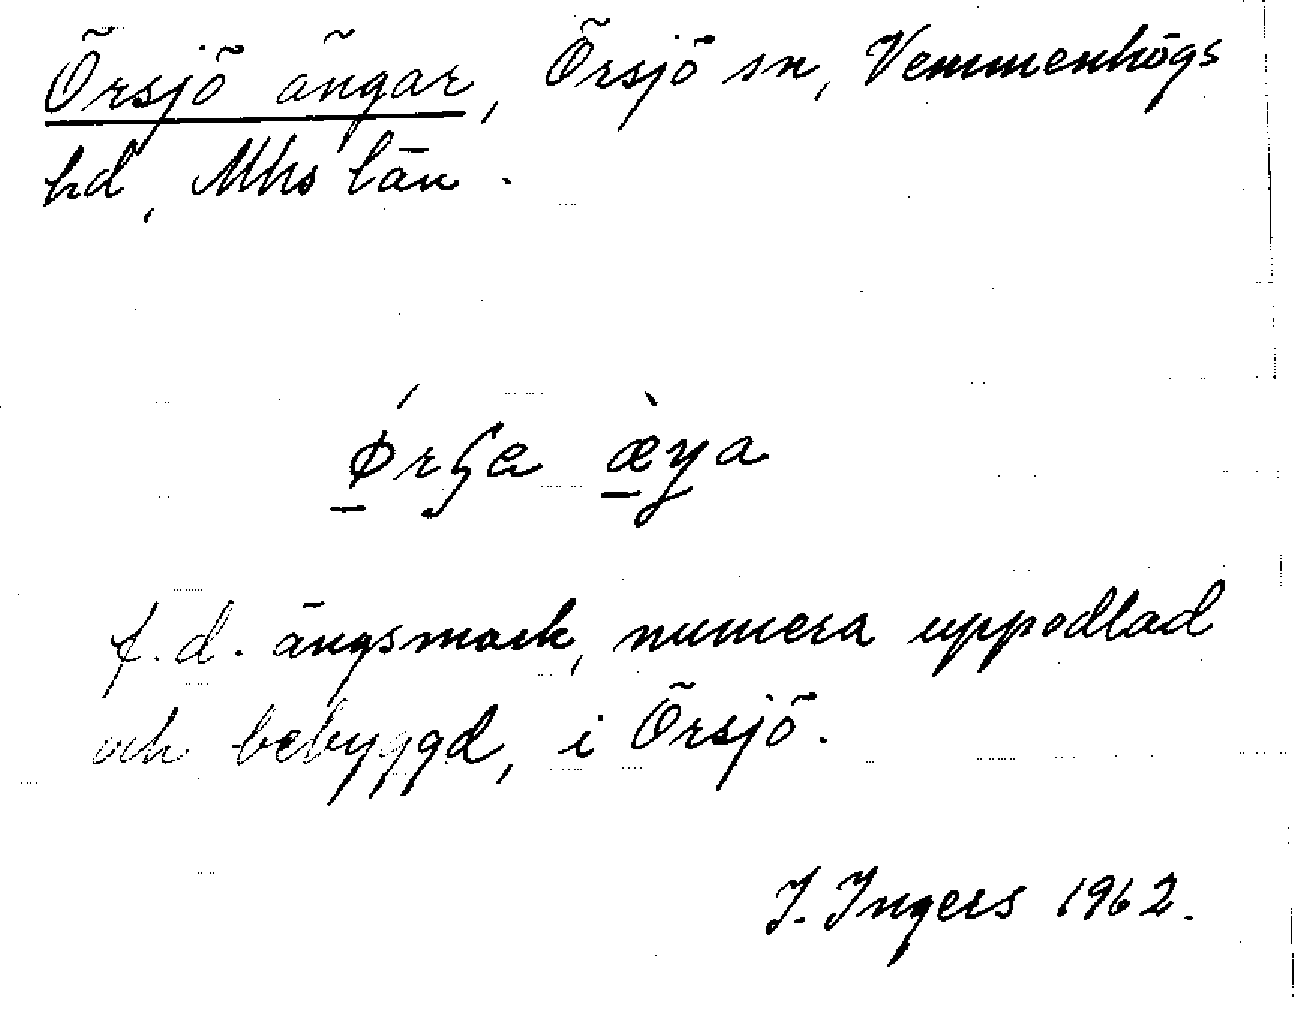 Örsjö ängar, Örsjö sn, Vemmenhögs
hd, Mhs län.
ǿrʂa æ̀ŋa
f.d. ängsmark, numera uppodlad
och bebyggd, i Örsjö.
I. Ingers 1962.